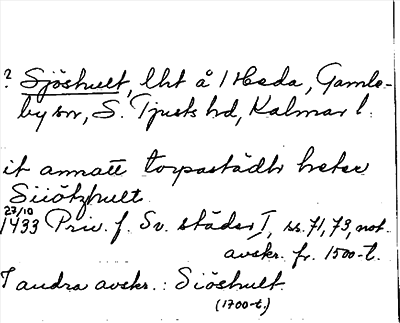 ? Sjöshult, lht å 1 Heda, Gamle-
by sn, S. Tjusts hd, Kalmar l.
it annatt torpastädh heter
Siiötzhult
27/10
1433 Priv. f. Sv. städer I, ss. 71, 73, not.
avskr. fr. 1500-t.
I andra avskr.: Siöshult.
(1700-t.)